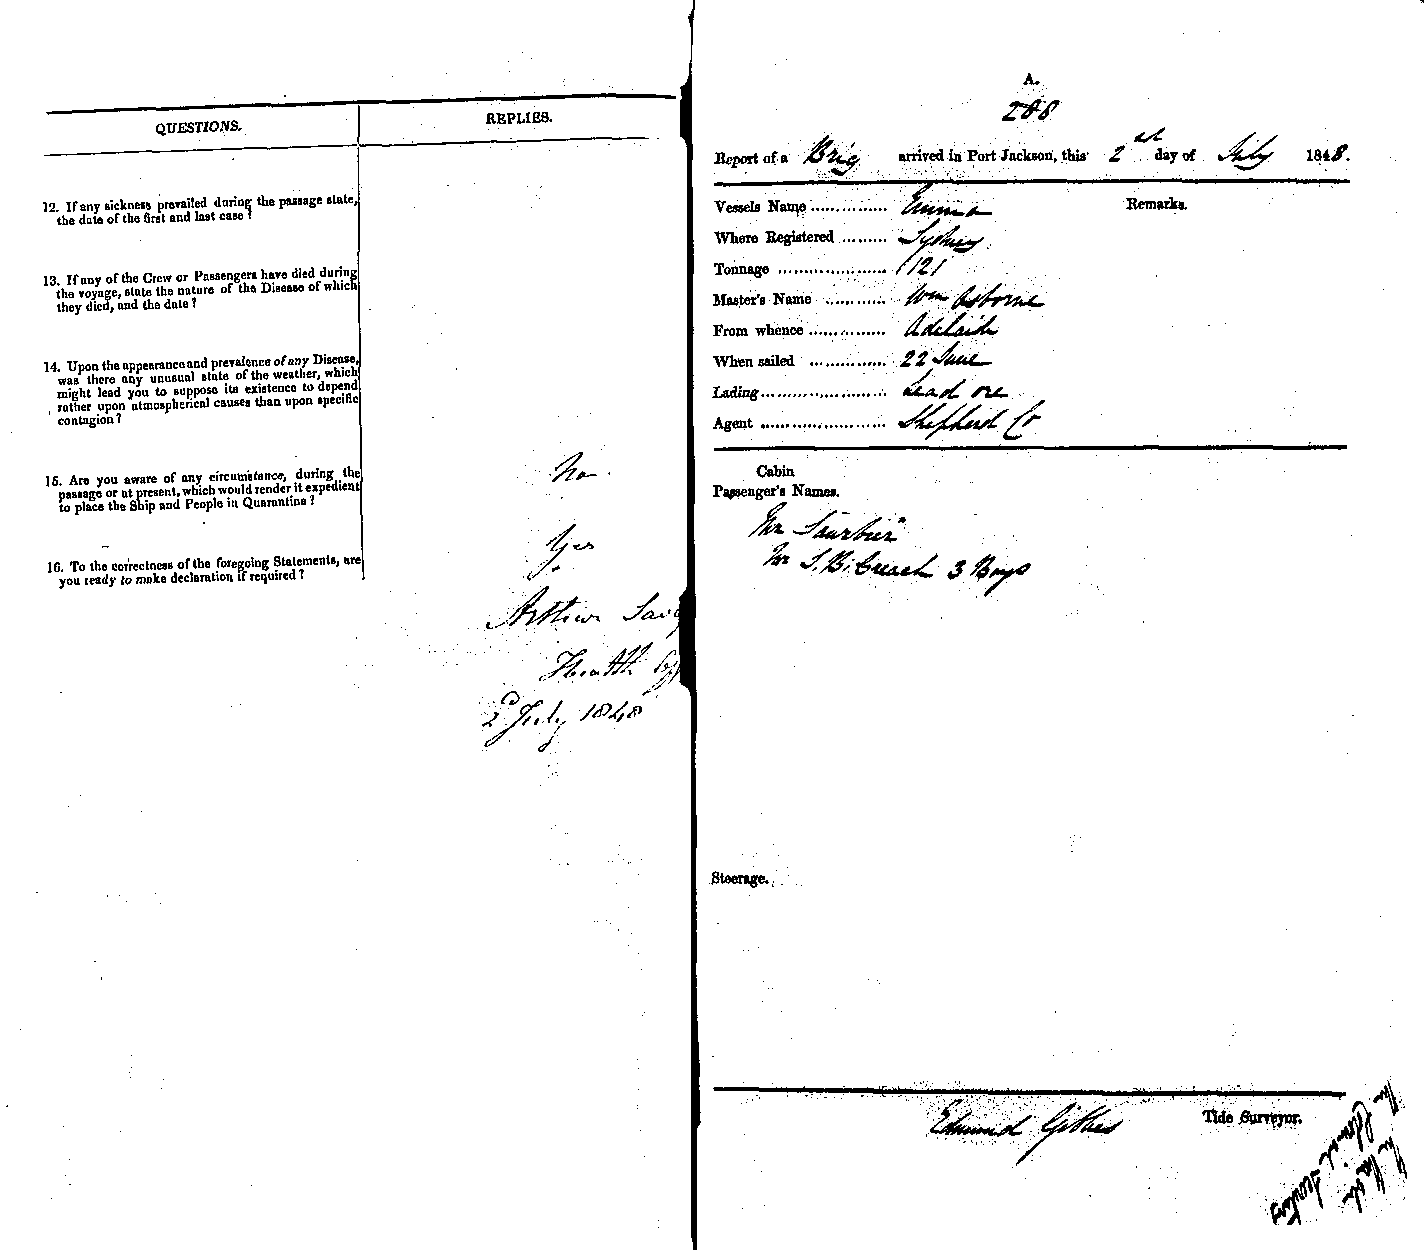 QUESTIONS.
REPLIES.
12. If any sickness prevailed during the passage state,
the date of the first and last case?
13. If any of the Crew or Passengers have died during
the voyage, state the nature of the Disease of which
they died, and the date?
14. Upon the appearance and prevalence of any Disease,
was there any unusual state of the weather, which
might lead you to suppose its existence to depend
rather upon atmospherical causes than upon specific
contagion?
15. Are you aware of any circumstance, during the
passage or at present, which would render it expedient
to place the Ship and People in Quarantine?
No.
16. To the correctness of the foregoing Statements, are
you ready to make declaration if required?
Yes
Arthur Sav
Health
2d July 1848
A.
208
Report of a Brig arrived in Port Jackson, this 2 day of July 1848.
Vessels Name .............. Emma
Remarks.
Where Registered ......... Sydney
Tonnage ..................... 121
Master's Name ........... Wm Osborne
From whence .............. Adelaide
When sailed .............. 22 June
Lading....................... Lead ore
Agent ........................ Shepherd Co
Cabin
Passenger's Names.
Mr
Mr 3 Boys
Steerage.
Edmund Gibbes
Tide Surveyor.